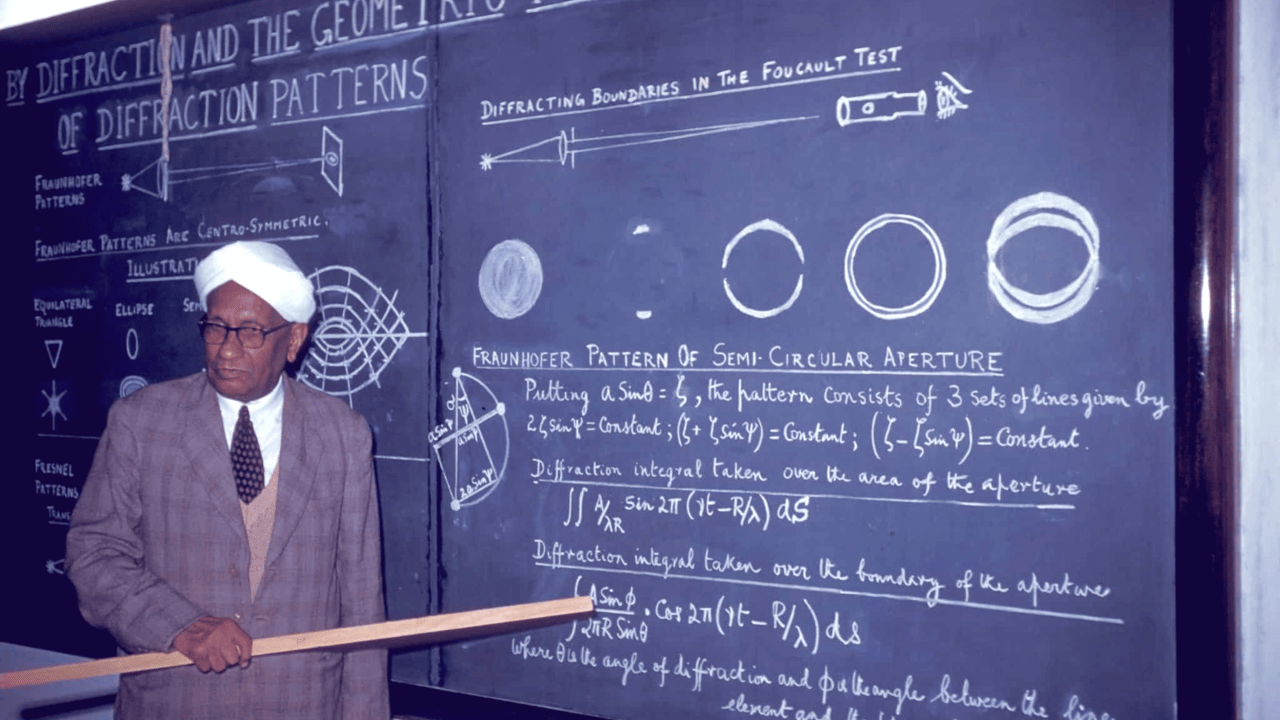 BY DIFFRACTION AND THE GEOMETRIC
OF DIFFRACTION PATTERNS
FRAUNHOFER
PATTERNS
FRAUNHOFER PATTERNS ARE CENTRO-SYMMETRIC.
EQUILATERAL
TRIANGLE
ELLIPSE
FRESNEL
PATTERNS
DIFFRACTING BOUNDARIES IN THE FOUCAULT TEST
FRAUNHOFER PATTERN OF SEMI-CIRCULAR APERTURE
Putting a Sinθ = ζ, the pattern consists of 3 sets of lines given by
2ζ sinψ = Constant; (ζ + ζ sinψ) = Constant; (ζ - ζ sinψ) = Constant.
ψ
2a Sinψ
Diffraction integral taken over the area of the aperture
∬ A/λR sin 2π (νt - R/λ) dS
Diffraction integral taken over the boundary of the aperture
∫ A Sin φ / 2πR Sinθ . Cos 2π (νt - R/λ) ds
where θ is the angle of diffraction and φ is the angle between the line
element and the